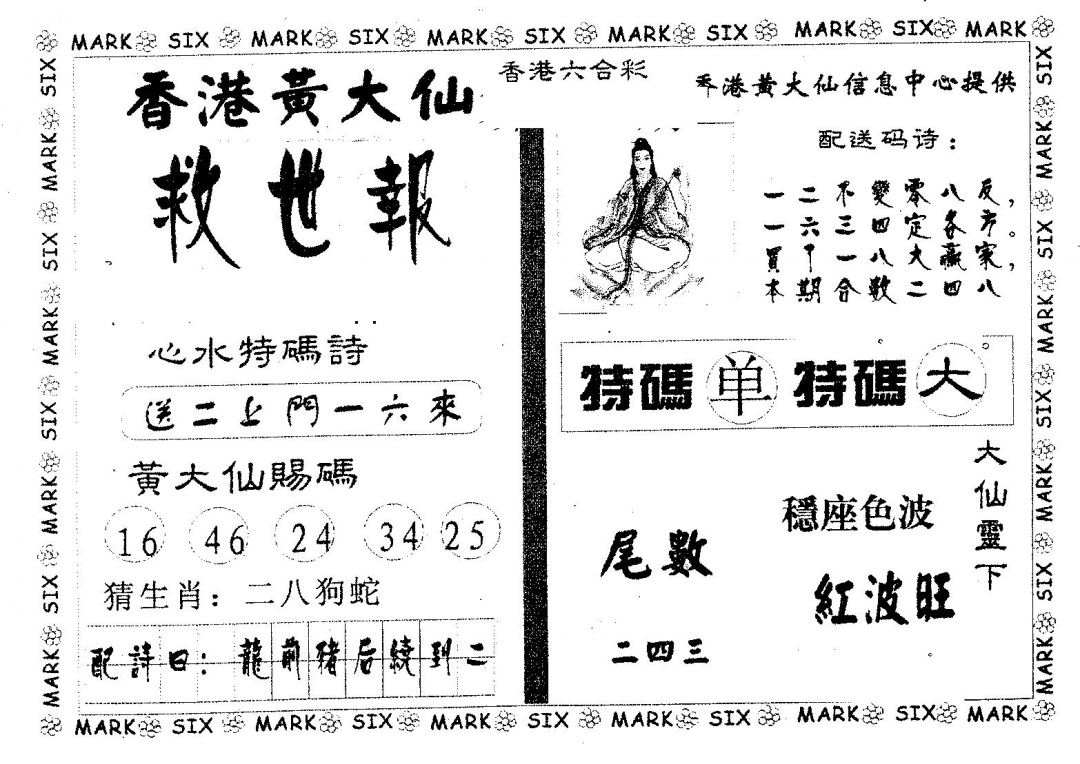 MARK SIX MARK SIX MARK SIX MARK SIX MARK SIX MARK
香港黃大仙
救世報
心水特碼詩
送二上門一六來
黃大仙賜碼
16 46 24 34 25
猜生肖：二八狗蛇
配詩曰：龍前豬后繞到二
香港六合彩
香港黃大仙信息中心提供
配送码诗：
一二不變零八反，
一六三四定各方。
買甲一八大贏家，
本期合数二四八。
特碼 单 特碼 大
大仙靈下
穩座色波
紅波旺
尾數
二四三
MARK SIX MARK SIX MARK SIX MARK
MARK SIX MARK SIX MARK SIX MARK
MARK SIX MARK SIX MARK SIX MARK SIX MARK SIX MARK